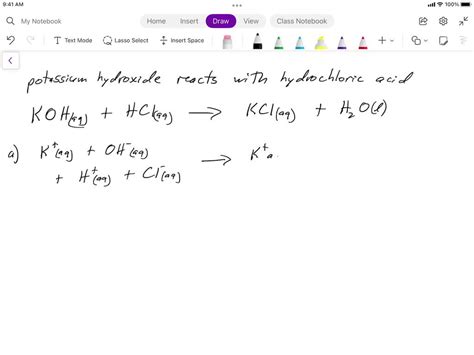 9:41 AM
100%
My Notebook
Home Insert Draw View Class Notebook
Text Mode Lasso Select Insert Space
potassium hydroxide reacts with hydrochloric acid
KOH(aq) + HCl(aq) → KCl(aq) + H₂O(l)
a) K⁺(aq) + OH⁻(aq) → K⁺a
+ H⁺(aq) + Cl⁻(aq)